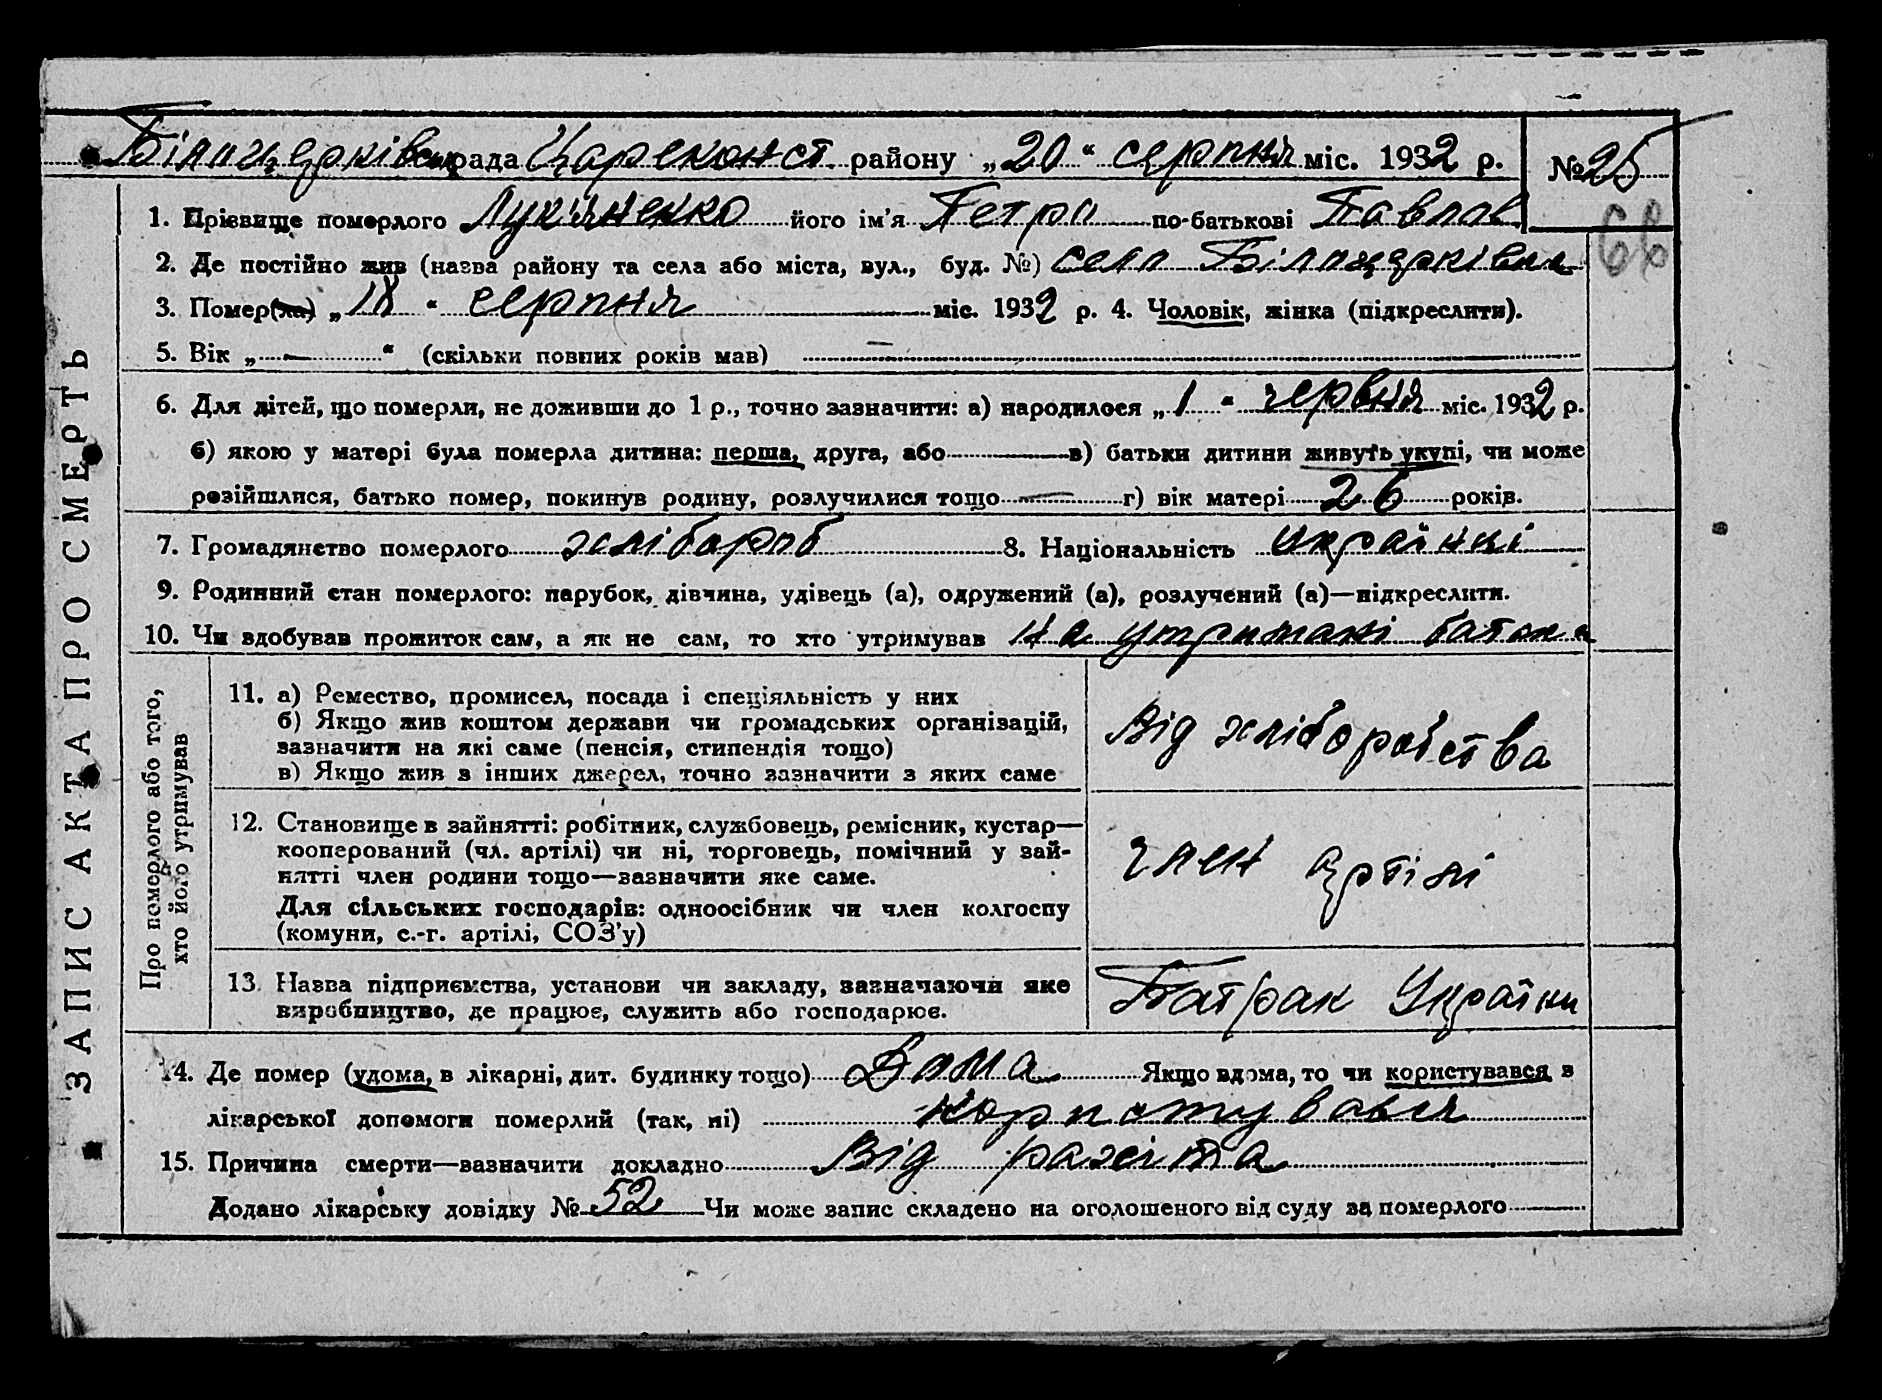 Білоцерківська рада Цареконст. району „20“ серпня міс. 1932 р. №25
1. Прізвище померлого Лукіяненко його ім’я Петро по-батькові Павлов
66
2. Де постійно жив (назва району та села або міста, вул., буд. №) село Білоцерківка
3. Помер(ла) „18“ серпня міс. 1932 р. 4. Чоловік, жінка (підкреслити).
5. Вік „—“ (скільки повних років мав) —
6. Для дітей, що померли, не доживши до 1 р., точно зазначити: а) народилося „1“ червня міс. 1932 р.
б) якою у матері була померла дитина: перша, друга, або — в) батьки дитини живуть укупі, чи може
розійшлися, батько помер, покинув родину, розлучилися тощо — г) вік матері 26 років.
7. Громадянство померлого хлібороб 8. Національність українці
9. Родинний стан померлого: парубок, дівчина, удівець (а), одружений (а), розлучений (а)—підкреслити.
10. Чи здобував прожиток сам, а як не сам, то хто утримував На утримані батька
ЗАПИС АКТА ПРО СМЕРТЬ
Про померлого або того,
хто його утримував
11. а) Ремество, промисел, посада і спеціяльність у них
б) Якщо жив коштом держави чи громадських організацій,
зазначити на які саме (пенсія, стипендія тощо)
в) Якщо жив з інших джерел, точно зазначити з яких саме
Від хліборобства
12. Становище в зайнятті: робітник, службовець, ремісник, кустар—
кооперований (чл. артілі) чи ні, торговець, помічний у зай-
нятті член родини тощо—зазначити яке саме.
Для сільських господарів: одноосібник чи член колгоспу
(комуни, с.-г. артілі, СОЗ’у)
член артілі
13. Назва підприємства, установи чи закладу, зазначаючи яке
виробництво, де працює, служить або господарює.
Батрак України
14. Де помер (удома, в лікарні, дит. будинку тощо) Дома Якщо вдома, то чи користувався з
лікарської допомоги померлий (так, ні) користувався
15. Причина смерти—зазначити докладно Від рахіта
Додано лікарську довідку № 52 Чи може запис складено на оголошеного від суду за померлого